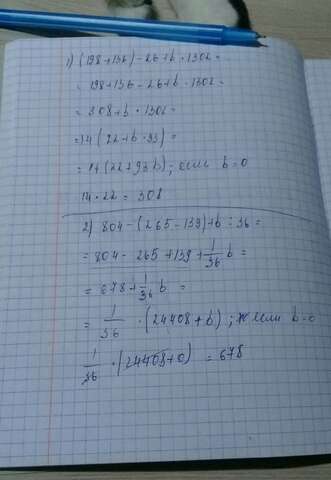 1) (198+136)-26+b·1302=
= 198+136-26+b·1302=
= 308+b·1302=
=14(22+b·93)=
=14(22+93b); если b=0
14·22=308
2) 804-(265-139)+b:36=
= 804-265+139+1/36 b=
= 678+1/36 b=
= 1/36 ·(24408+b); если b=0
1/36 ·(24408+0)=678